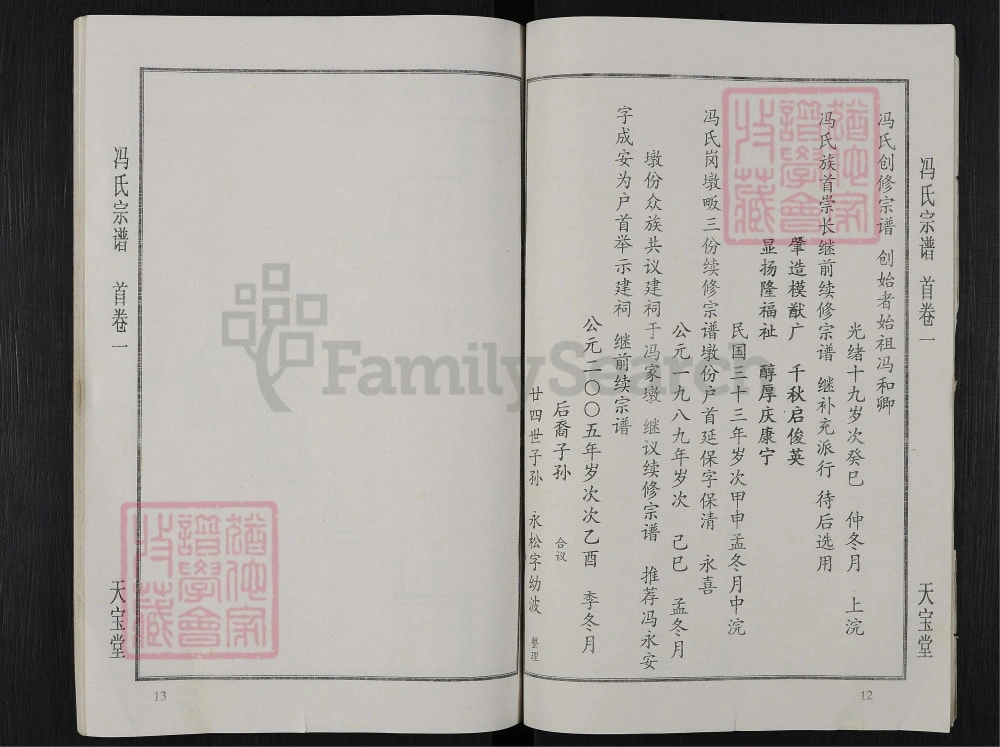 冯氏宗谱 首卷一
天宝堂
12
冯氏创修宗谱 创始者始祖冯和卿
光绪十九岁次癸巳 仲冬月 上浣
冯氏族首崇长继前续修宗谱 继补充派行 待后选用
肇造模猷广 千秋启俊英
显扬隆福祉 醇厚庆康宁
民国三十三年岁次甲申孟冬月中浣
冯氏岗墩畈三份续修宗谱墩份户首延保字保清 永喜
公元一九八九年岁次 己巳 孟冬月
墩份众族共议建祠于冯家墩 继议续修宗谱 推荐冯永安
字成安为户首举示建祠 继前续宗谱
公元二〇〇五年岁次次乙酉 季冬月
后裔子孙 合议
廿四世子孙 永松字幼波 整理
冯氏宗谱 首卷一
天宝堂
13
猶他家
譜學會
收藏
猶他家
譜學會
收藏
FamilySearch